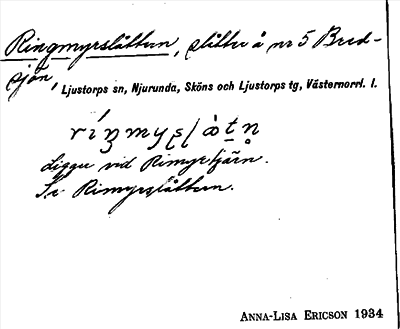 Ringmyrslåttern, slåtter å nr 5 Bred-
sjön, Ljustorps sn, Njurunda, Sköns och Ljustorps tg, Västernorrl. l.
Ligger vid Rimyrtjärn.
Se Rimyrslåttern.
ANNA-LISA ERICSON 1934